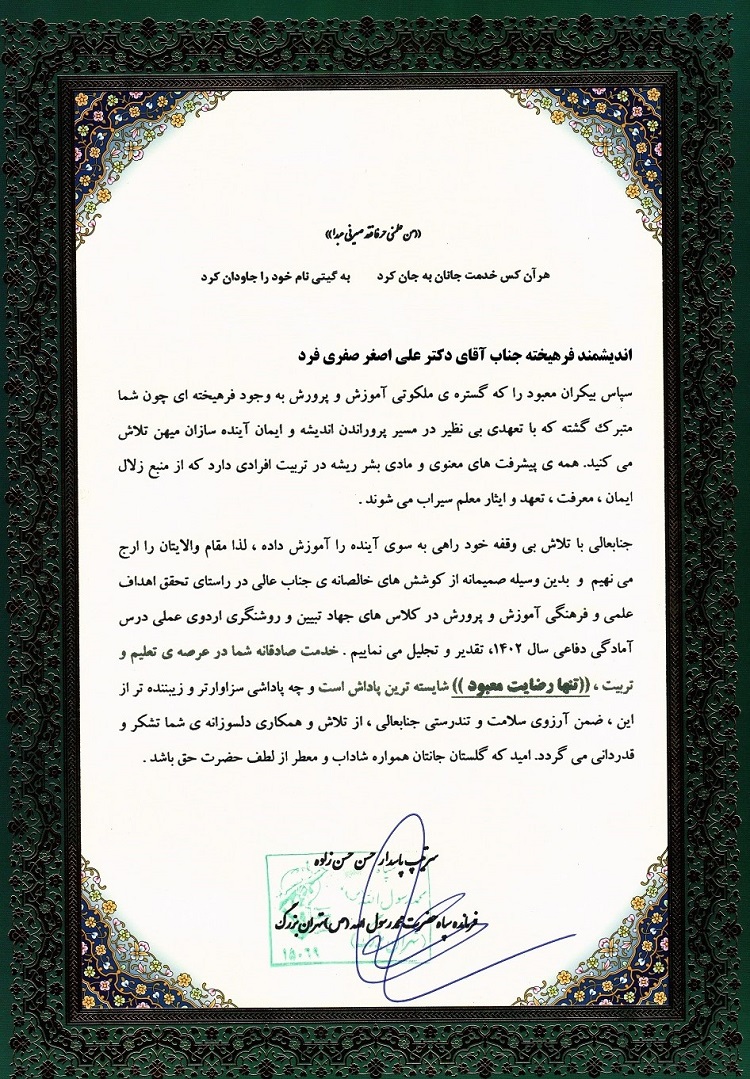 «من علمنی حرفا فقد صیرنی عبدا»
هرآن کس خدمت جانان به جان کرد به گیتی نام خود را جاودان کرد
اندیشمند فرهیخته جناب آقای دکتر علی اصغر صفری فرد
سپاس بیکران معبود را که گستره ی ملکوتی آموزش و پرورش به وجود فرهیخته ای چون شما
متبرک گشته که با تعهدی بی نظیر در مسیر پروراندن اندیشه و ایمان آینده سازان میهن تلاش
می کنید. همه ی پیشرفت های معنوی و مادی بشر ریشه در تربیت افرادی دارد که از منبع زلال
ایمان ، معرفت ، تعهد و ایثار معلم سیراب می شوند .
جنابعالی با تلاش بی وقفه خود راهی به سوی آینده را آموزش داده ، لذا مقام والایتان را ارج
می نهیم و بدین وسیله صمیمانه از کوشش های خالصانه ی جناب عالی در راستای تحقق اهداف
علمی و فرهنگی آموزش و پرورش در کلاس های جهاد تبیین و روشنگری اردوی عملی درس
آمادگی دفاعی سال ۱۴۰۲، تقدیر و تجلیل می نماییم . خدمت صادقانه شما در عرصه ی تعلیم و
تربیت ، ((تنها رضایت معبود )) شایسته ترین پاداش است و چه پاداشی سزاوارتر و زیبنده تر از
این ، ضمن آرزوی سلامت و تندرستی جنابعالی ، از تلاش و همکاری دلسوزانه ی شما تشکر و
قدردانی می گردد. امید که گلستان جانتان همواره شاداب و معطر از لطف حضرت حق باشد .
سرتیپ پاسدار حسن حسن زاده
فرمانده سپاه حضرت محمد رسول الله (ص) تهران بزرگ
۱۵۰۶۹